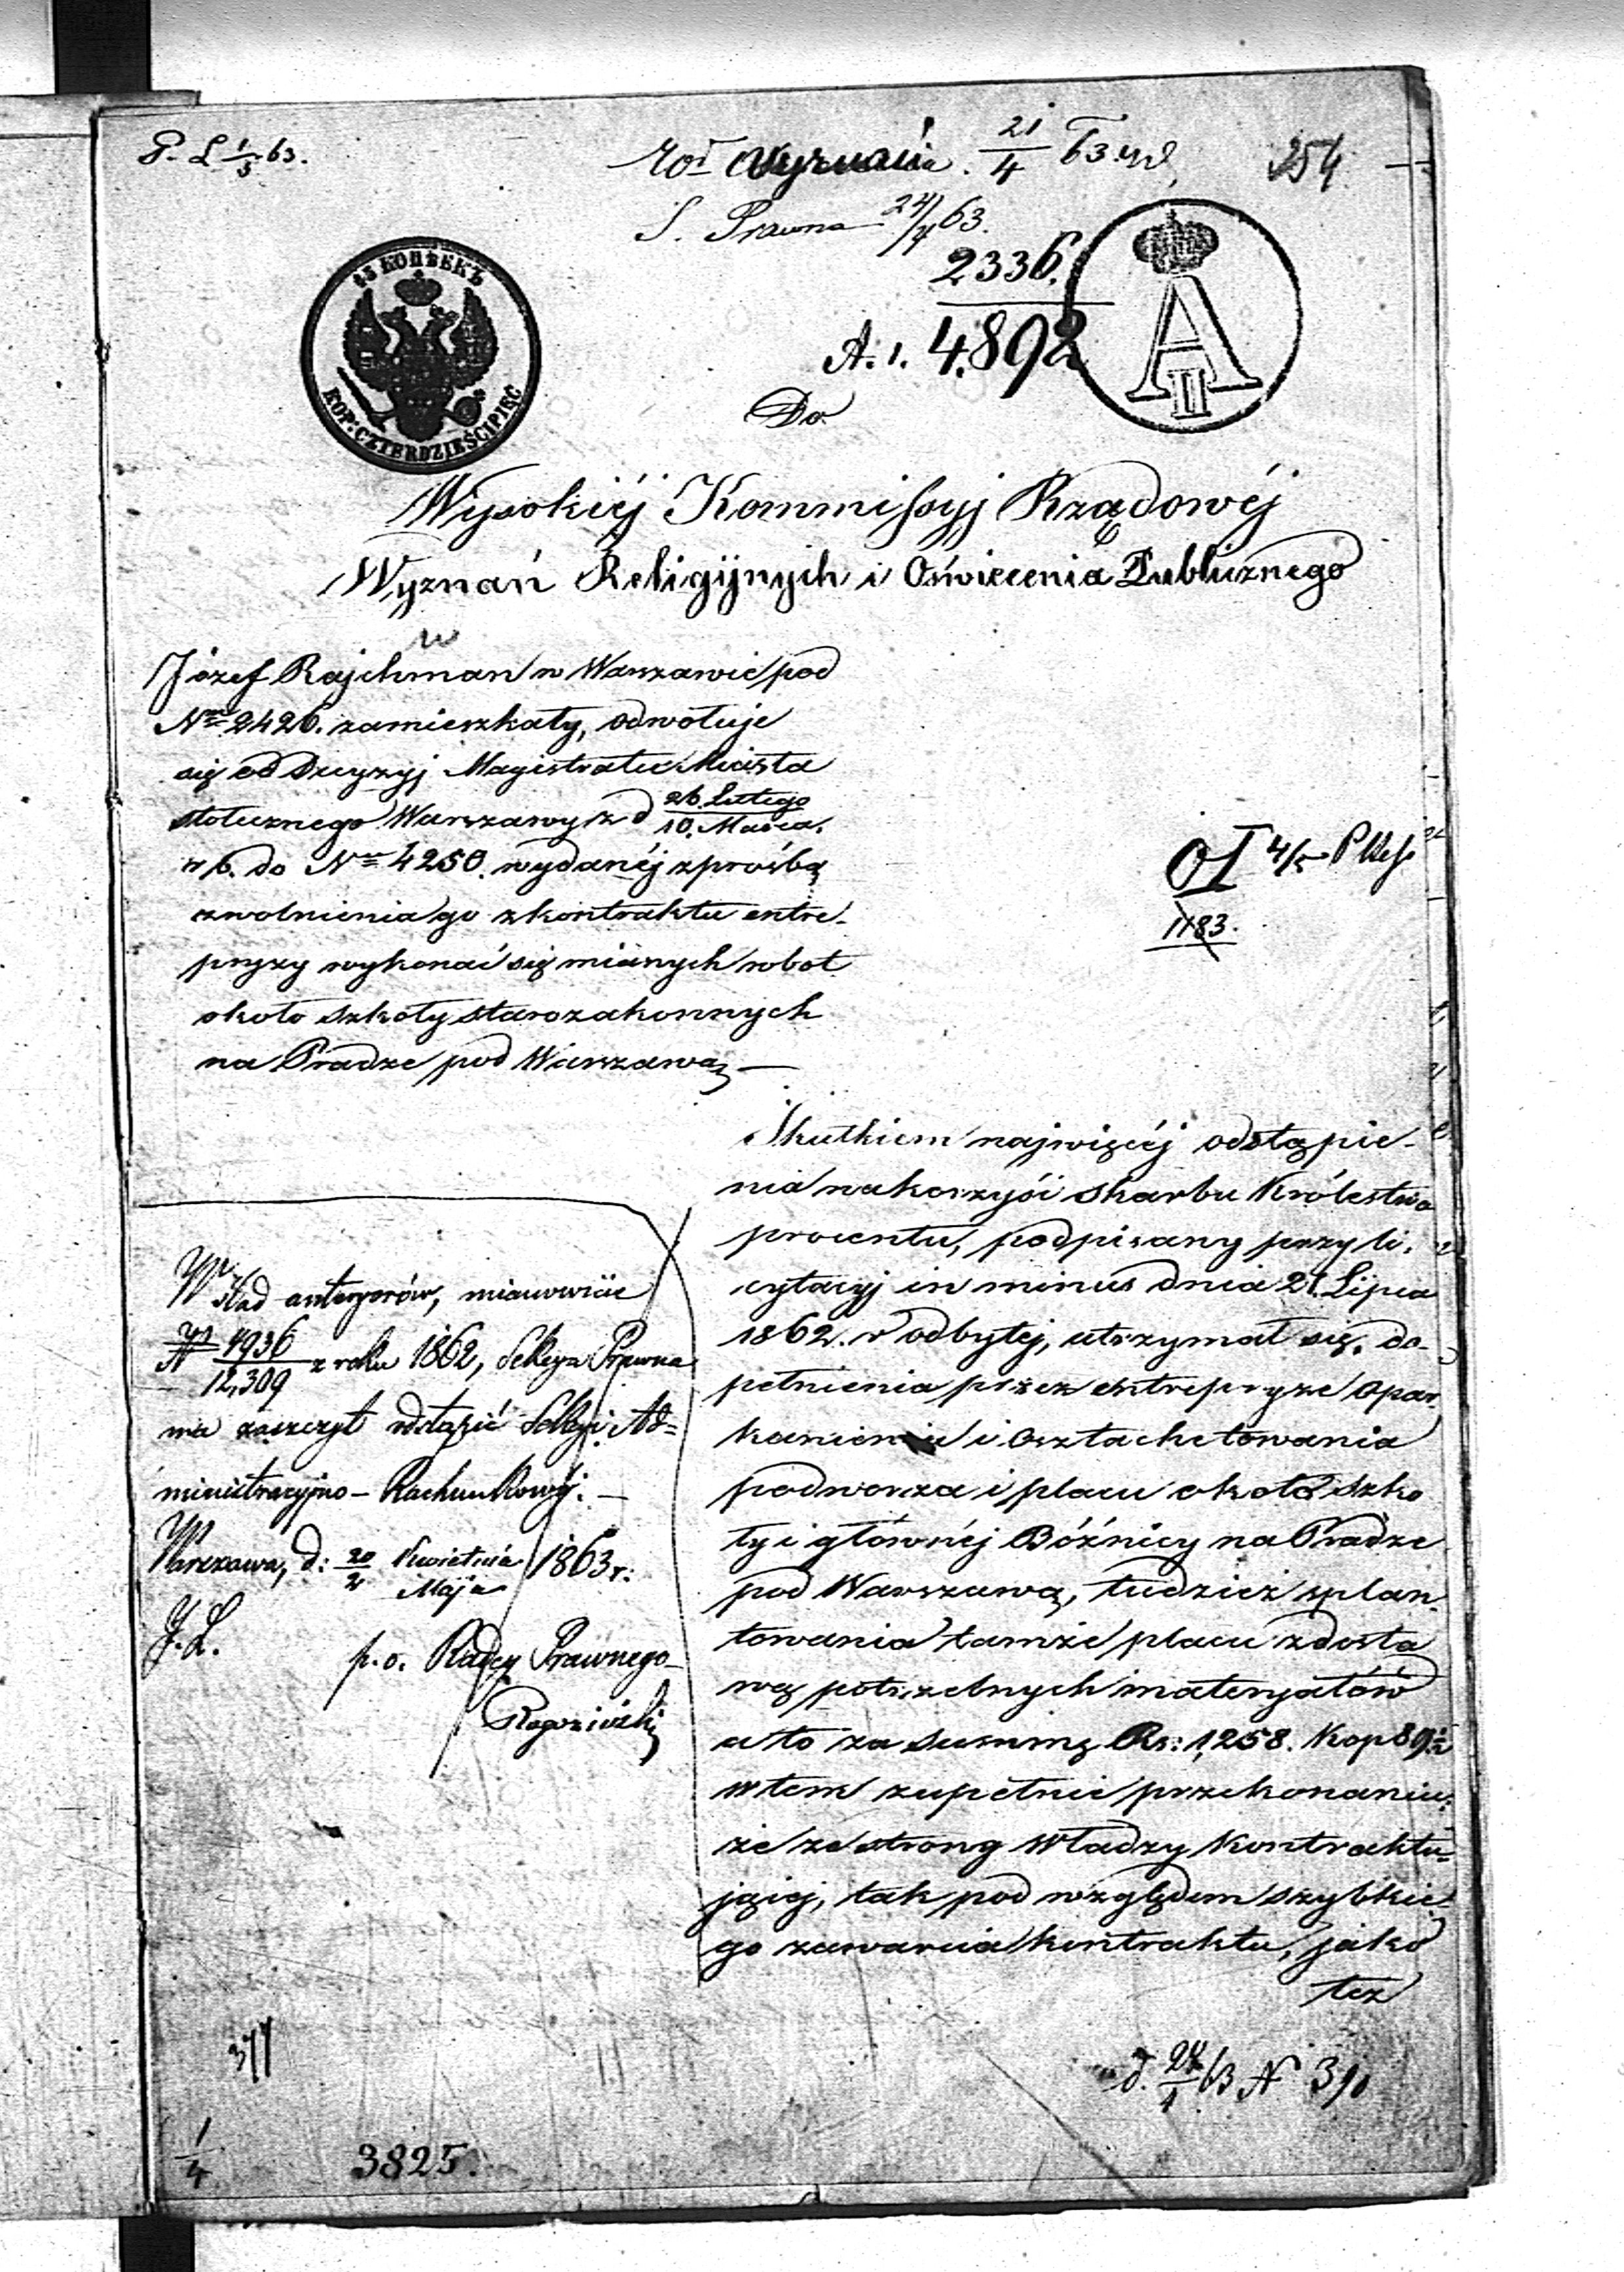 P. L 1/5 63.
Wyznania. 21/4 63
254
S. Prawna 24/4 63.
2336.
A. 1. 4.892
45 КОПѢЕКЪ
KOP: CZTERDZIEŚCI PIĘC
A II
Do
Wysokiéj Kommissyj Rządowéj
Wyznań Religijnych i Oświecenia Publicznego
Józef Rajchman w Warszawie pod
Nrem 2426. zamieszkały, odwołuje
się od Decyzyj Magistratu Miasta
stołecznego Warszawy z d 26 Lutego/10. Marca.
r b. do Nru 4250. wydanéj z prośbą
uwolnienia go z kontraktu entre-
pryzy wykonać się mianych robot
około szkoły starozakonnych
na Pradze pod Warszawą —
OI 4/5
1183.
Skutkiem najwięcéj odstąpie-
nia na korzyść skarbu Królestwa
procentu, podpisany przy li-
cytacyj in minus dnia 21 Lipca
1862. r odbytej, utrzymał się, do-
pełnienia przez entrepryze opar-
kanienia i osztachetowania
podworza i placu około szko
ły i głównéj Bóźnicy na Pradze
pod Warszawą, tudzież splan-
towania tamże placu z dosta
wą potrzebnych materyałów
a to za summę Rs: 1,258. Kop 89½
w tem zupełnie przekonaniu,
że ze strony Władzy Kontraktu-
jącej, tak pod względem szybkie-
go zawarcia kontraktu, jako
też
W ślad anteryorów, mianowicie
N 4936/12,309 z roku 1862, Sekcya Prawna
ma zaszczyt odstąpić Sekcyi Ad-
ministracyjno - Rachunkowéj. —
Warszawa, d: 20/2 Kwietnia/Maja 1863 r:
J. L.
p. o. Radcy Prawnego
377
1/4
3825.
63 N